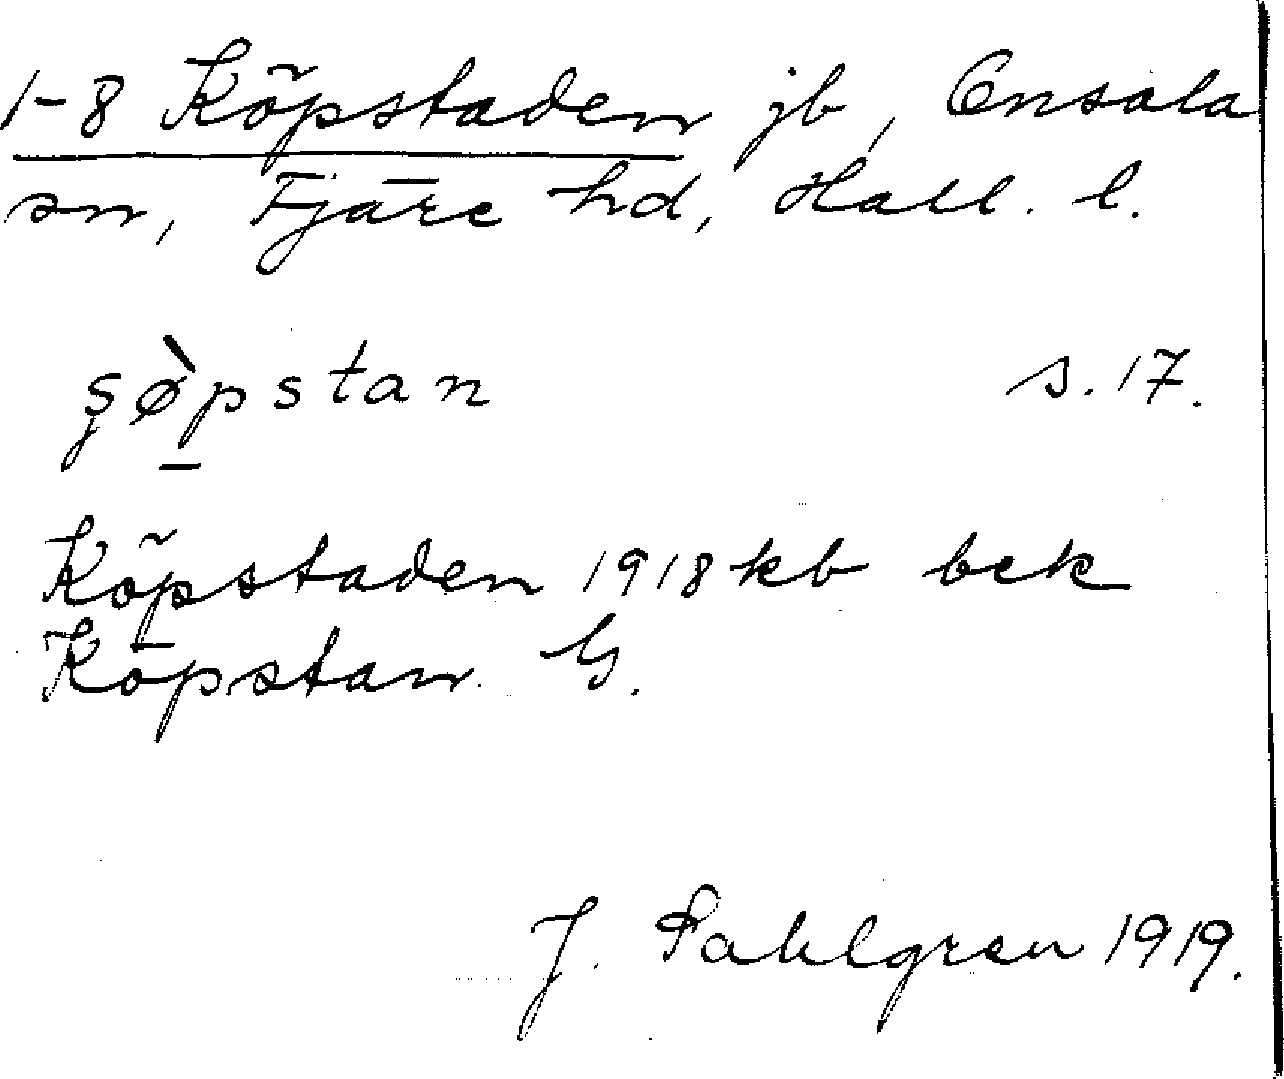 1-8 Köpstaden jb, Onsala
sn, Fjäre hd, Hall. l.
şø̀pstan s. 17.
Köpstaden 1918 kb bek
Köpstan G.
J. Sahlgren 1919.